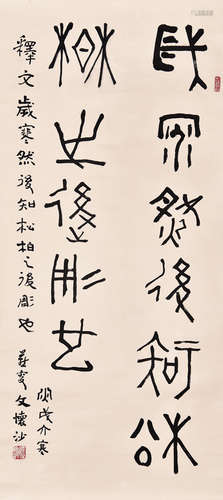 歲寒然後知松
柏之後彫也
釋文歲寒然後知松柏之後彫也
燕叟文懷沙